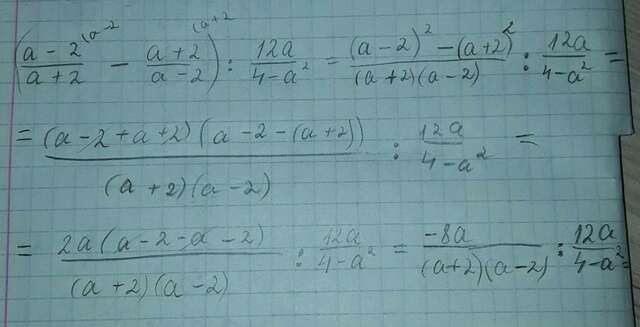 ((a-2)/(a+2) (a-2 - (a+2)/(a-2) (a+2) : 12a/(4-a²) = ((a-2)² -(a+2)²)/((a+2)(a-2)) : 12a/(4-a²) =
= ((a-2+a+2)(a-2-(a+2)))/((a+2)(a-2)) : 12a/(4-a²) =
= (2a(a-2-a-2))/((a+2)(a-2)) : 12a/(4-a²) = (-8a)/((a+2)(a-2)) : 12a/(4-a²) =